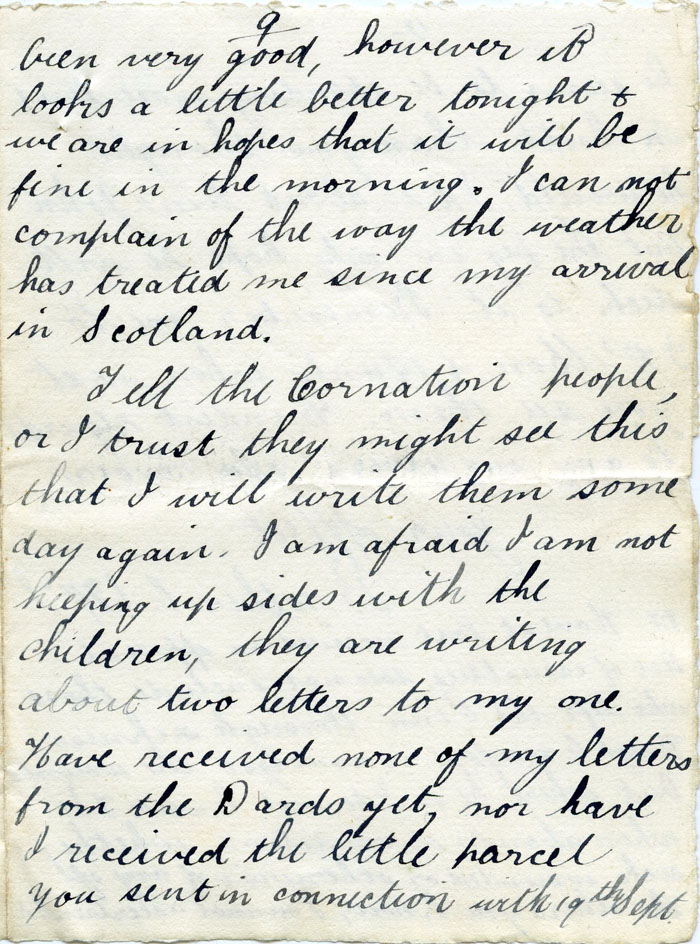 9
been very good, however it
looks a little better tonight &
we are in hopes that it will be
fine in the morning. I can not
complain of the way the weather
has treated me since my arrival
in Scotland.
Tell the Cornation people,
or I trust they might see this
that I will write them some
day again. I am afraid I am not
keeping up sides with the
children, they are writing
about two letters to my one.
Have received none of my letters
from the Dards yet, nor have
I received the little parcel
you sent in connection with 19th Sept.